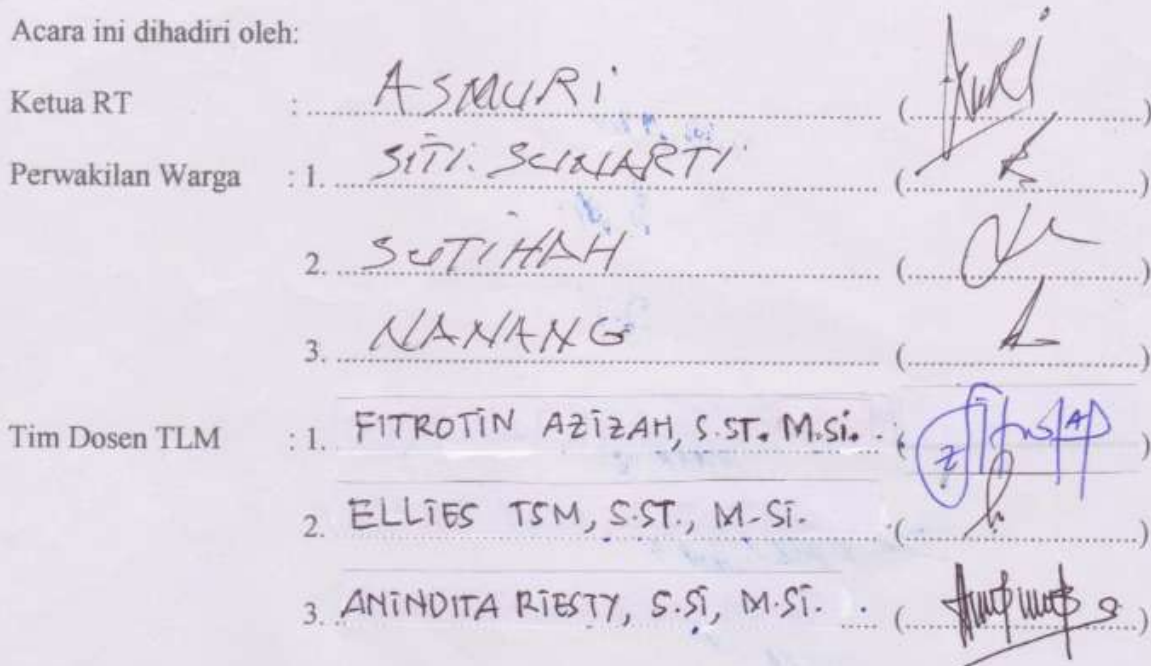 Acara ini dihadiri oleh:
Ketua RT : ASMURI (..........)
Perwakilan Warga : 1. SITI. SUNARTI (..........)
2. SUTIHAH (..........)
3. NANANG (..........)
Tim Dosen TLM : 1. FITROTIN AZIZAH, S.ST. M.Si. (..........)
2. ELLIES TSM, S.ST., M.Si. (..........)
3. ANINDITA RIESTY, S.Si, M.Si. (..........)